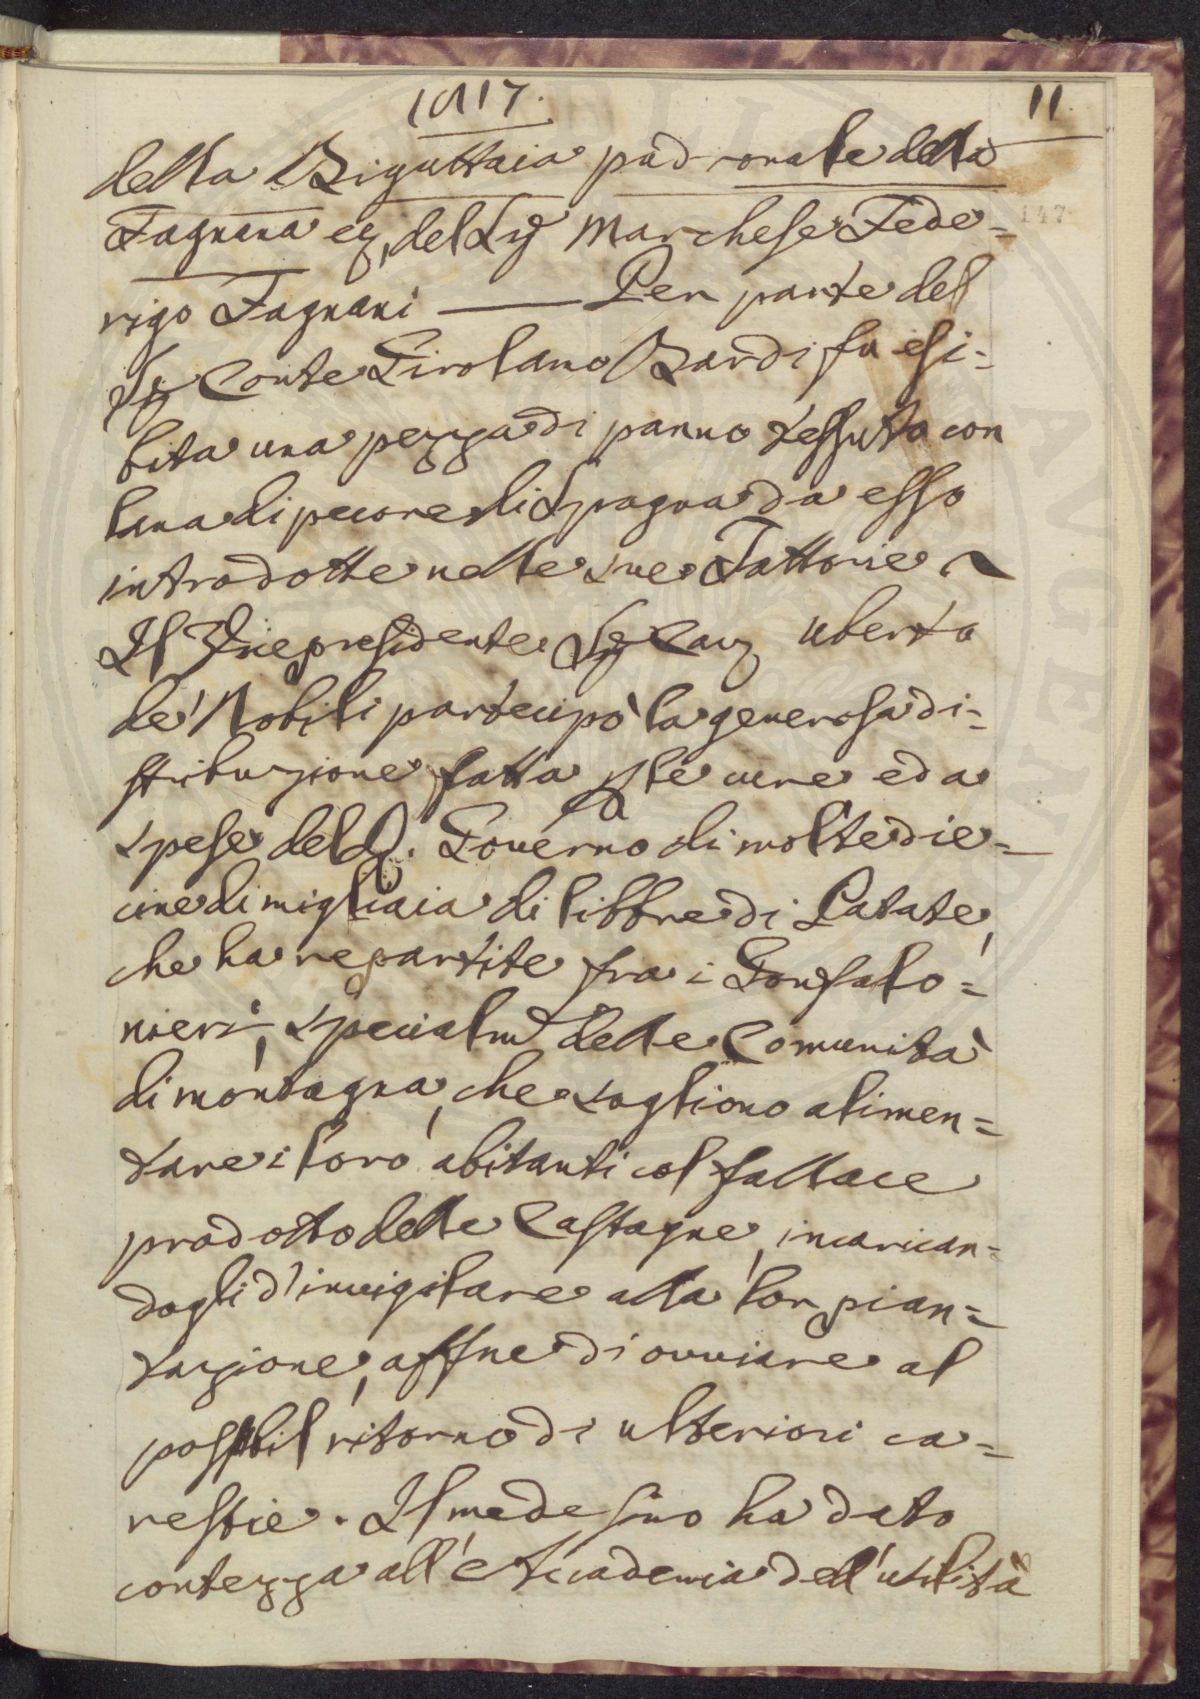 1817.
11.
della Bigattaia padronale della
147
Fagnana &c, del Sig Marchese Fede=
rigo Fagnani —— Per parte del
Sig Conte Girolamo Bardi fu esi=
bita una pezza di panno tessuto con
lana di pecore di Spagna da esso
introdotte nelle sue Fattorie ~
Il Vicepresidente Sig Cav Uberto
de' Nobili partecipò la generosa di=
stribuzione fatta per le cure ed a
spese del R. Governo di molte die=
cine di migliaia di libbre di Patate,
che ha repartite fra i Gonfalo=
nieri, specialm delle Comunità
di montagna, che sogliono alimen=
tare i loro abitanti col fallace
prodotto delle Castagne, incarican=
dogli d'invigilare alla lor pian=
tazione, affine di ovviare al
possibil ritorno di ulteriori ca=
restie. Il medesimo ha dato
contezza all'Accademia dell'utilità